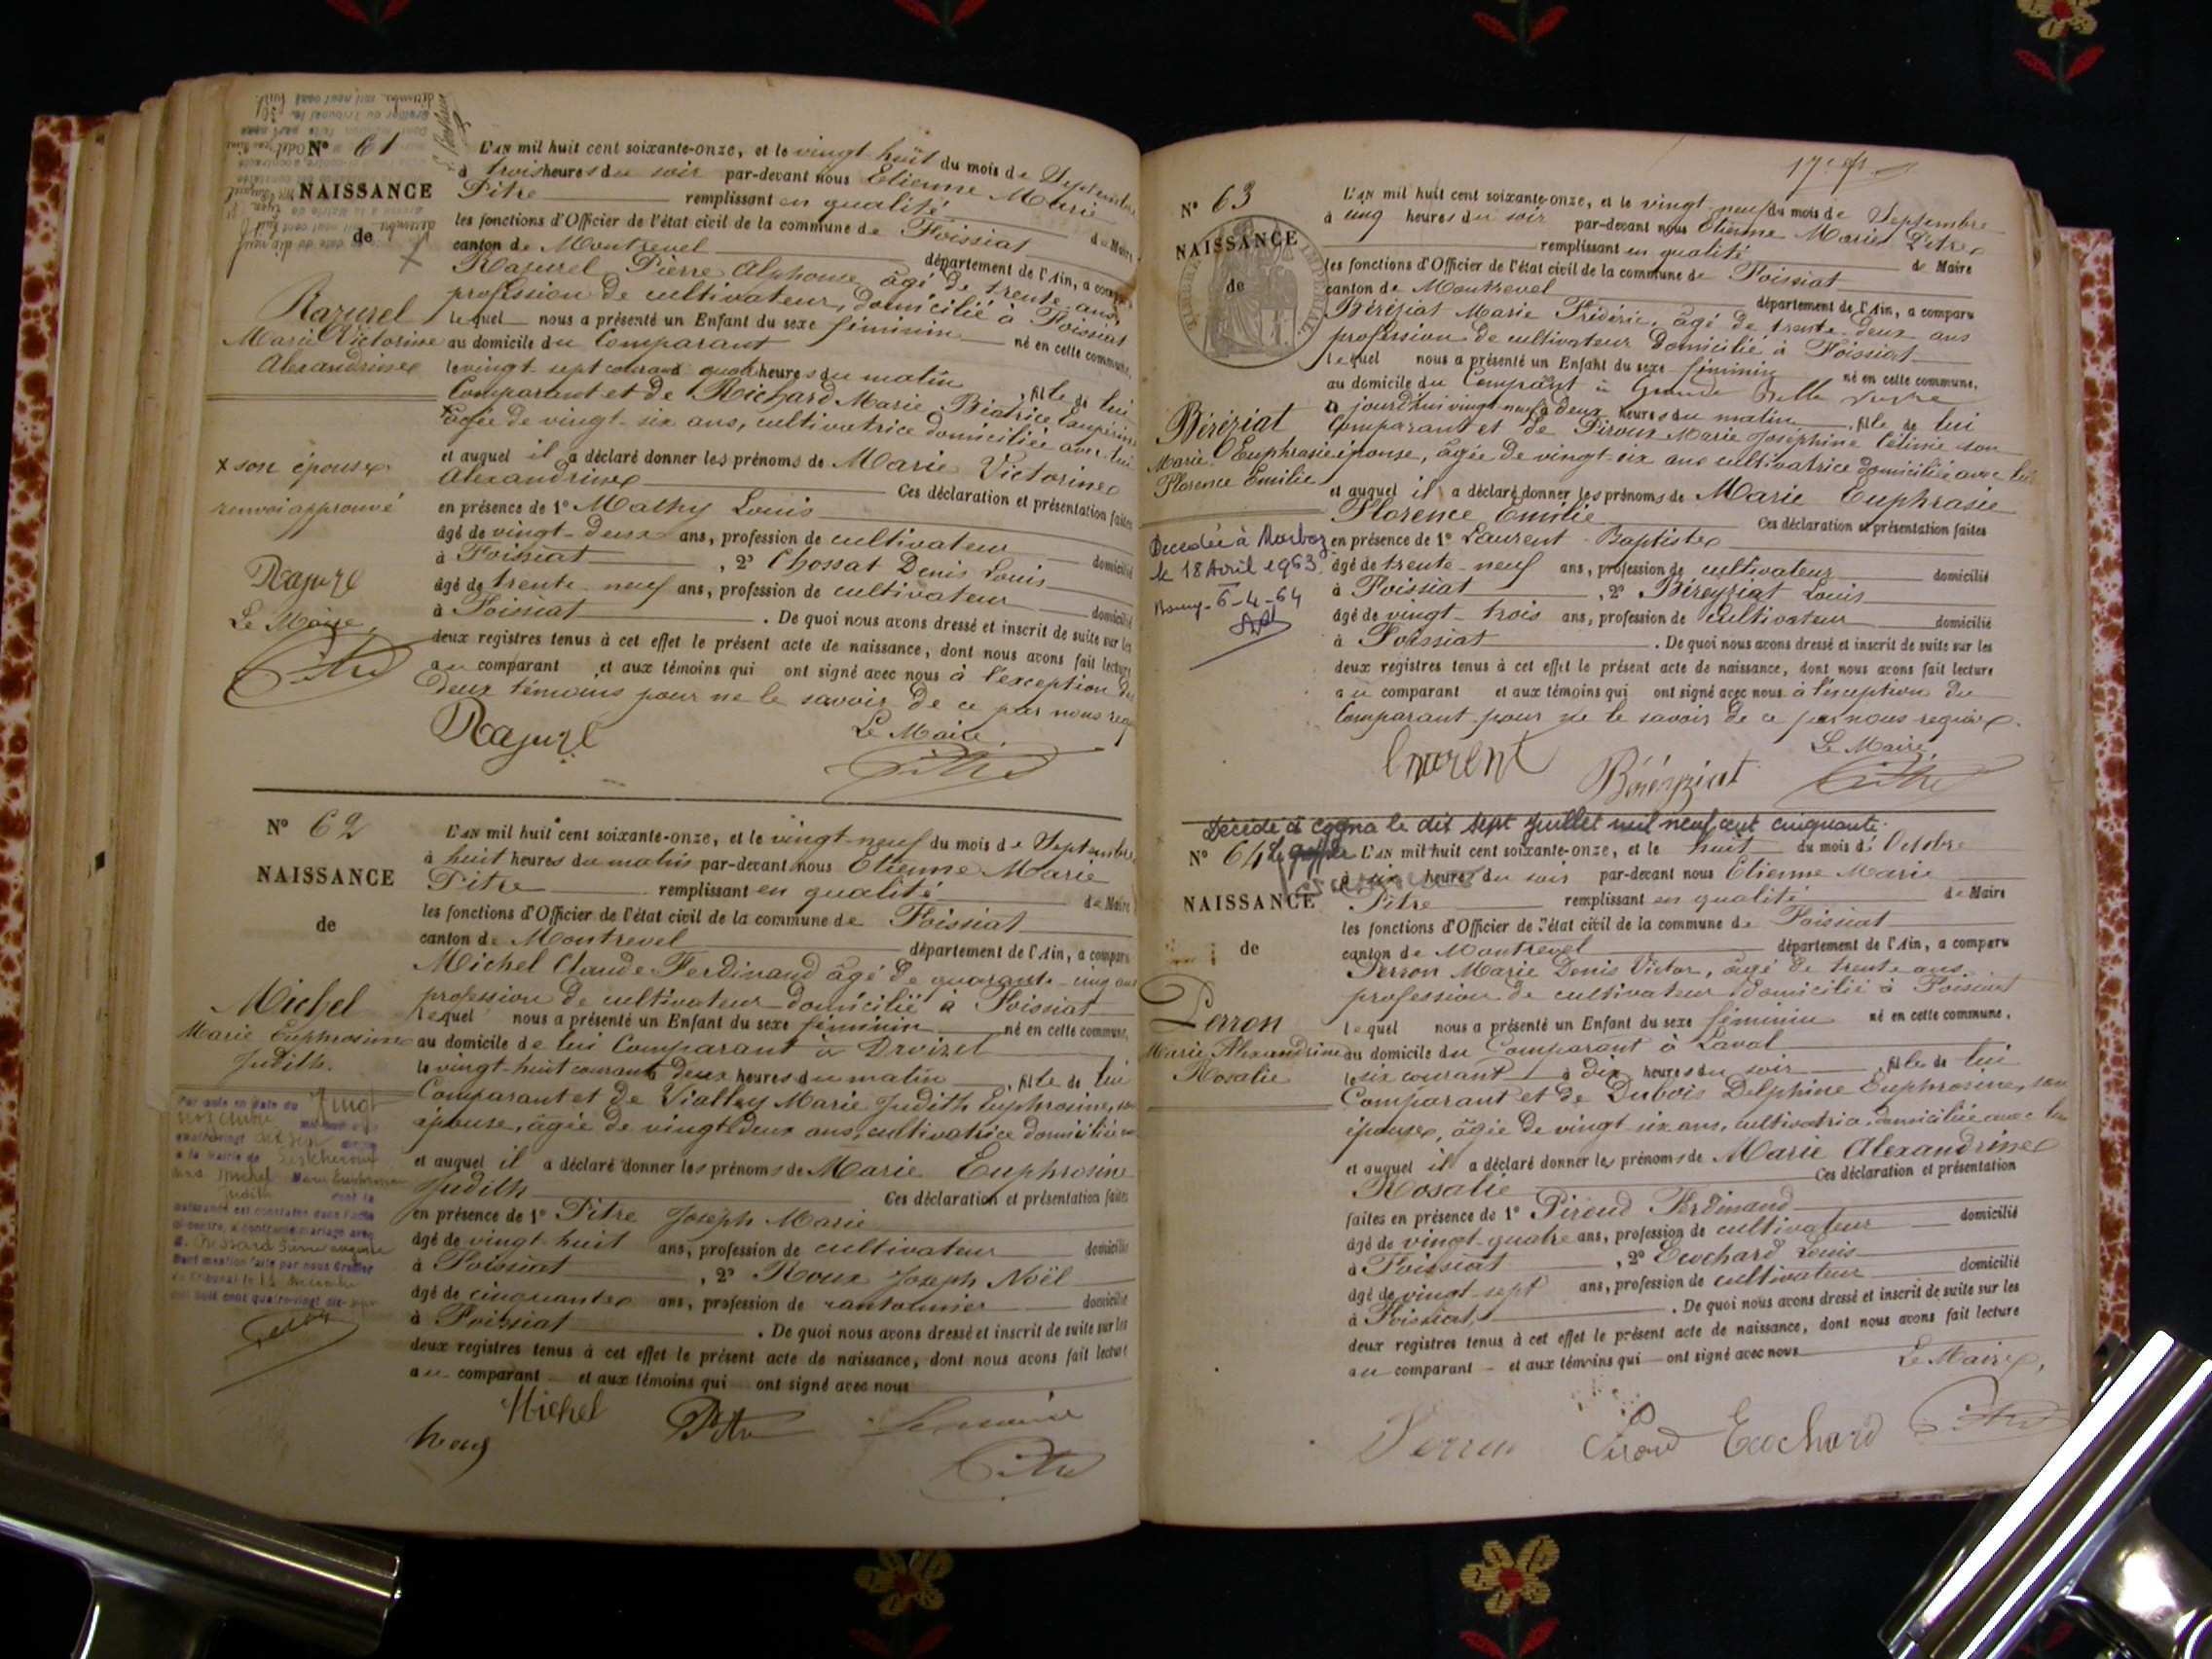 N° 61
NAISSANCE
de
Razurel
Marie Victorine
Alexandrine
x son épouse
renvoi approuvé
Razurel
Le Maire,
Pitre
L'AN mil huit cent soixante-onze, et le vingt-huit du mois de Septembre
à trois heures du soir par-devant nous Etienne Marie
Pitre remplissant en qualité de Maire
les fonctions d'Officier de l'état civil de la commune de Foissiat
canton de Montrevel département de l'Ain, a comparu
Razurel Pierre Alphonse, âgé de trente ans,
profession de cultivateur, domicilié à Foissiat
lequel nous a présenté un Enfant du sexe féminin né en cette commune,
au domicile du Comparant
le vingt-sept courant à quatre heures du matin, fille de lui
Comparant et de Richard Marie Béatrice
âgée de vingt-six ans, cultivatrice domiciliée avec lui
et auquel il a déclaré donner les prénoms de Marie Victorine
Alexandrine Ces déclaration et présentation faites
en présence de 1° Mathy Louis
âgé de vingt-deux ans, profession de cultivateur domicilié
à Foissiat, 2° Chossat Denis Louis
âgé de trente-neuf ans, profession de cultivateur domicilié
à Foissiat. De quoi nous avons dressé et inscrit de suite sur les
deux registres tenus à cet effet le présent acte de naissance, dont nous avons fait lecture
au comparant et aux témoins qui ont signé avec nous à l'exception des
deux témoins pour ne le savoir de ce par nous requis
Razurel
Le Maire,
Pitre
N° 62
NAISSANCE
de
Michel
Marie Euphrosine
Judith.
L'AN mil huit cent soixante-onze, et le vingt-neuf du mois de Septembre
à huit heures du matin par-devant nous Etienne Marie
Pitre remplissant en qualité de Maire
les fonctions d'Officier de l'état civil de la commune de Foissiat
canton de Montrevel département de l'Ain, a comparu
Michel Claude Ferdinand âgé de quarante-cinq ans
profession de cultivateur domicilié à Foissiat
lequel nous a présenté un Enfant du sexe féminin né en cette commune,
au domicile de lui Comparant à Droizel
le vingt-huit courant à deux heures du matin, fille de lui
Comparant et de Vialley Marie Judith Euphrosine, son
épouse, âgée de vingt-deux ans, cultivatrice domiciliée
et auquel il a déclaré donner les prénoms de Marie Euphrosine
Judith Ces déclaration et présentation faites
en présence de 1° Pitre Joseph Marie
âgé de vingt-huit ans, profession de cultivateur domicilié
à Foissiat, 2° Roux Joseph Noël
âgé de cinquante ans, profession de cantonnier domicilié
à Foissiat. De quoi nous avons dressé et inscrit de suite sur les
deux registres tenus à cet effet le présent acte de naissance, dont nous avons fait lecture
au comparant et aux témoins qui ont signé avec nous
Michel Pitre Le maire
Roux Pitre
17e f
N° 63
NAISSANCE
de
TIMBRE IMPERIAL
Béréziat
Marie Euphrasie
Florence Emilie
Décédée à Marboz
le 18 Avril 1963
Bourg - 6-4-64
L'AN mil huit cent soixante-onze, et le vingt-neuf du mois de Septembre
à cinq heures du soir par-devant nous Etienne Marie Pitre
remplissant en qualité de Maire
les fonctions d'Officier de l'état civil de la commune de Foissiat
canton de Montrevel département de l'Ain, a comparu
Béréziat Marie Frédéric, âgé de trente-deux ans
profession de cultivateur domicilié à Foissiat
lequel nous a présenté un Enfant du sexe féminin né en cette commune,
au domicile du Comparant à Grande
aujourd'hui vingt-neuf à deux heures du matin, fille de lui
Comparant et de Piroux Marie Joséphine Célinie son
épouse, âgée de vingt-six ans cultivatrice domiciliée avec lui
et auquel il a déclaré donner les prénoms de Marie Euphrasie
Florence Emilie Ces déclaration et présentation faites
en présence de 1° Laurent Baptiste
âgé de trente-neuf ans, profession de cultivateur domicilié
à Foissiat, 2° Béreyziat Louis
âgé de vingt-trois ans, profession de cultivateur domicilié
à Foissiat. De quoi nous avons dressé et inscrit de suite sur les
deux registres tenus à cet effet le présent acte de naissance, dont nous avons fait lecture
au comparant et aux témoins qui ont signé avec nous à l'exception du
Comparant pour ne le savoir de ce par nous requis.
Le Maire,
Laurent Béreyziat Pitre
Décédé à Cogna le dix sept juillet mil neuf cent cinquante.
N° 64
NAISSANCE
de
Perron
Marie Alexandrine
Rosalie
L'AN mil huit cent soixante-onze, et le huit du mois de Octobre
à six heures du soir par-devant nous Etienne Marie
Pitre remplissant en qualité de Maire
les fonctions d'Officier de l'état civil de la commune de Foissiat
canton de Montrevel département de l'Ain, a comparu
Perron Marie Denis Victor, âgé de trente ans.
profession de cultivateur domicilié à Foissiat
lequel nous a présenté un Enfant du sexe féminin né en cette commune,
au domicile du Comparant à Laval
le six courant à dix heures du soir, fille de lui
Comparant et de Dubois Delphine Euphrosine, son
épouse, âgée de vingt-six ans, cultivatrice, domiciliée avec lui
et auquel il a déclaré donner les prénoms de Marie Alexandrine
Rosalie Ces déclaration et présentation
faites en présence de 1° Piroud Ferdinand
âgé de vingt-quatre ans, profession de cultivateur domicilié
à Foissiat, 2° Ecochard Louis
âgé de vingt-sept ans, profession de cultivateur domicilié
à Foissiat. De quoi nous avons dressé et inscrit de suite sur les
deux registres tenus à cet effet le présent acte de naissance, dont nous avons fait lecture
au comparant et aux témoins qui ont signé avec nous
Le Maire,
Perron Piroud Ecochard Pitre